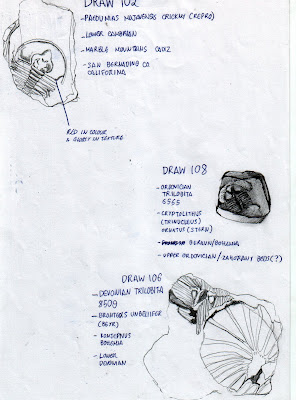 DRAW 102
- PAEDUMIAS MOJAVENSIS CRICKMY (REPRO)
- LOWER CAMBRIAN
- MARBLE MOUNTAINS CADIZ
- SAN BERNADINO CO.
CALLIFORINA
RED IN COLOUR
& IN TEXTURE
DRAW 108
- ORDOVICIAN
TRILOBITA
6565
- CRYPTOLITHUS
(TRINUCLEUS)
ORNATUS (STERN)
- BERAUN/BOHEMIA
- UPPER ORDOVICIAN/ZAHORANY BEDS(?)
DRAW 106
- DEVONIAN TRILOBITA
8509
- BRONTEUS UMBELLIFER
(BEYR)
- KONIEPRUS
BOHEMIA
- LOWER
DEVONIAN